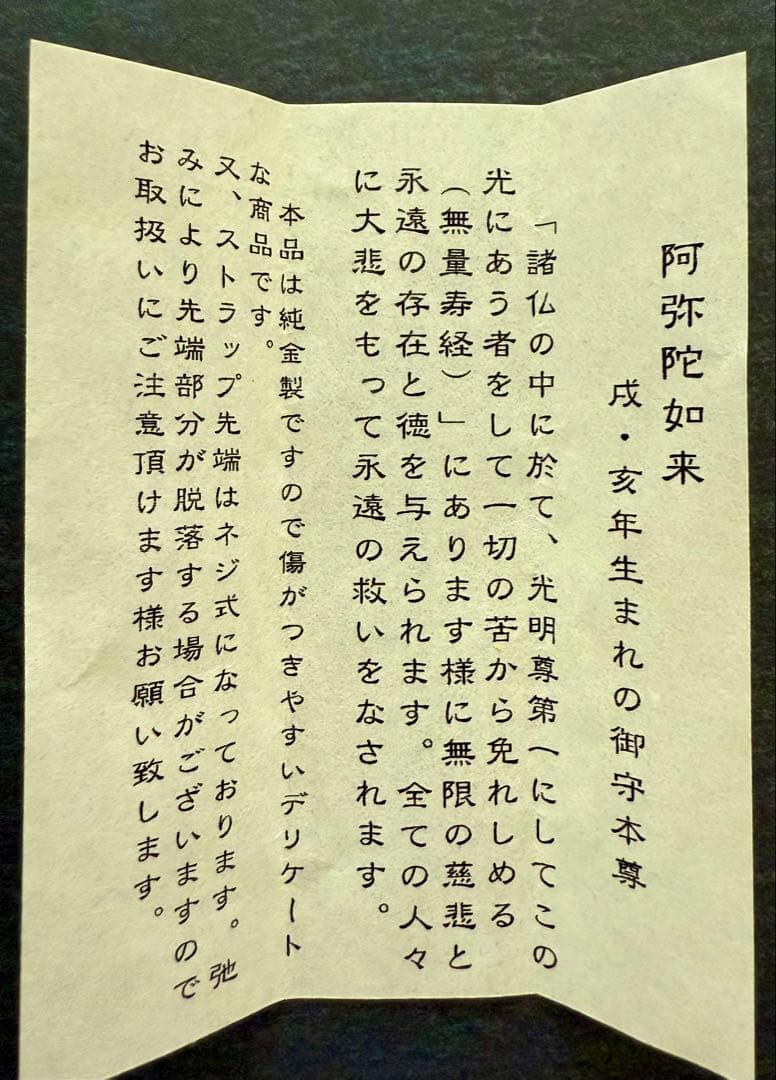 阿弥陀如来
戌・亥年生まれの御守本尊
「諸仏の中に於て、光明尊第一にしてこの
光にあう者をして一切の苦から免れしめる
（無量寿経）」にあります様に無限の慈悲と
永遠の存在と徳を与えられます。全ての人々
に大悲をもって永遠の救いをなされます。
本品は純金製ですので傷がつきやすいデリケート
な商品です。
又、ストラップ先端はネジ式になっております。弛
みにより先端部分が脱落する場合がございますので
お取扱いにご注意頂けます様お願い致します。